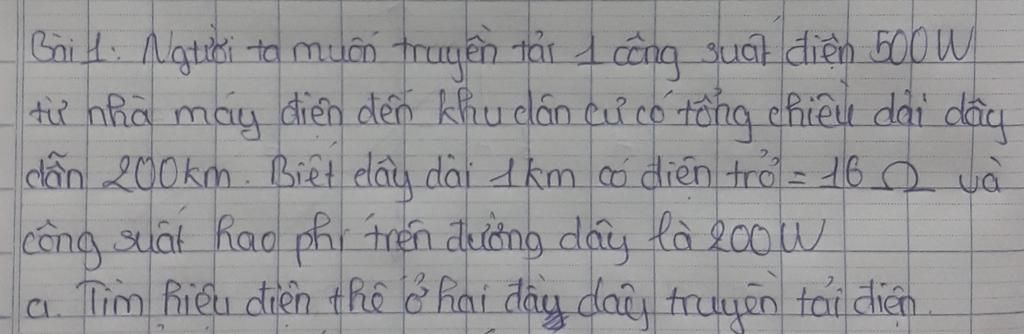 Bài 1: Người ta muốn truyền tải 1 công suất điện 500W
từ nhà máy điện đến khu dân cư có tổng chiều dài dây
dẫn 200km. Biết dây dài 1km có điện trở = 16 Ω và
công suất hao phí trên đường dây là 200W
a. Tìm hiệu điện thế ở hai đầu dây truyền tải điện.